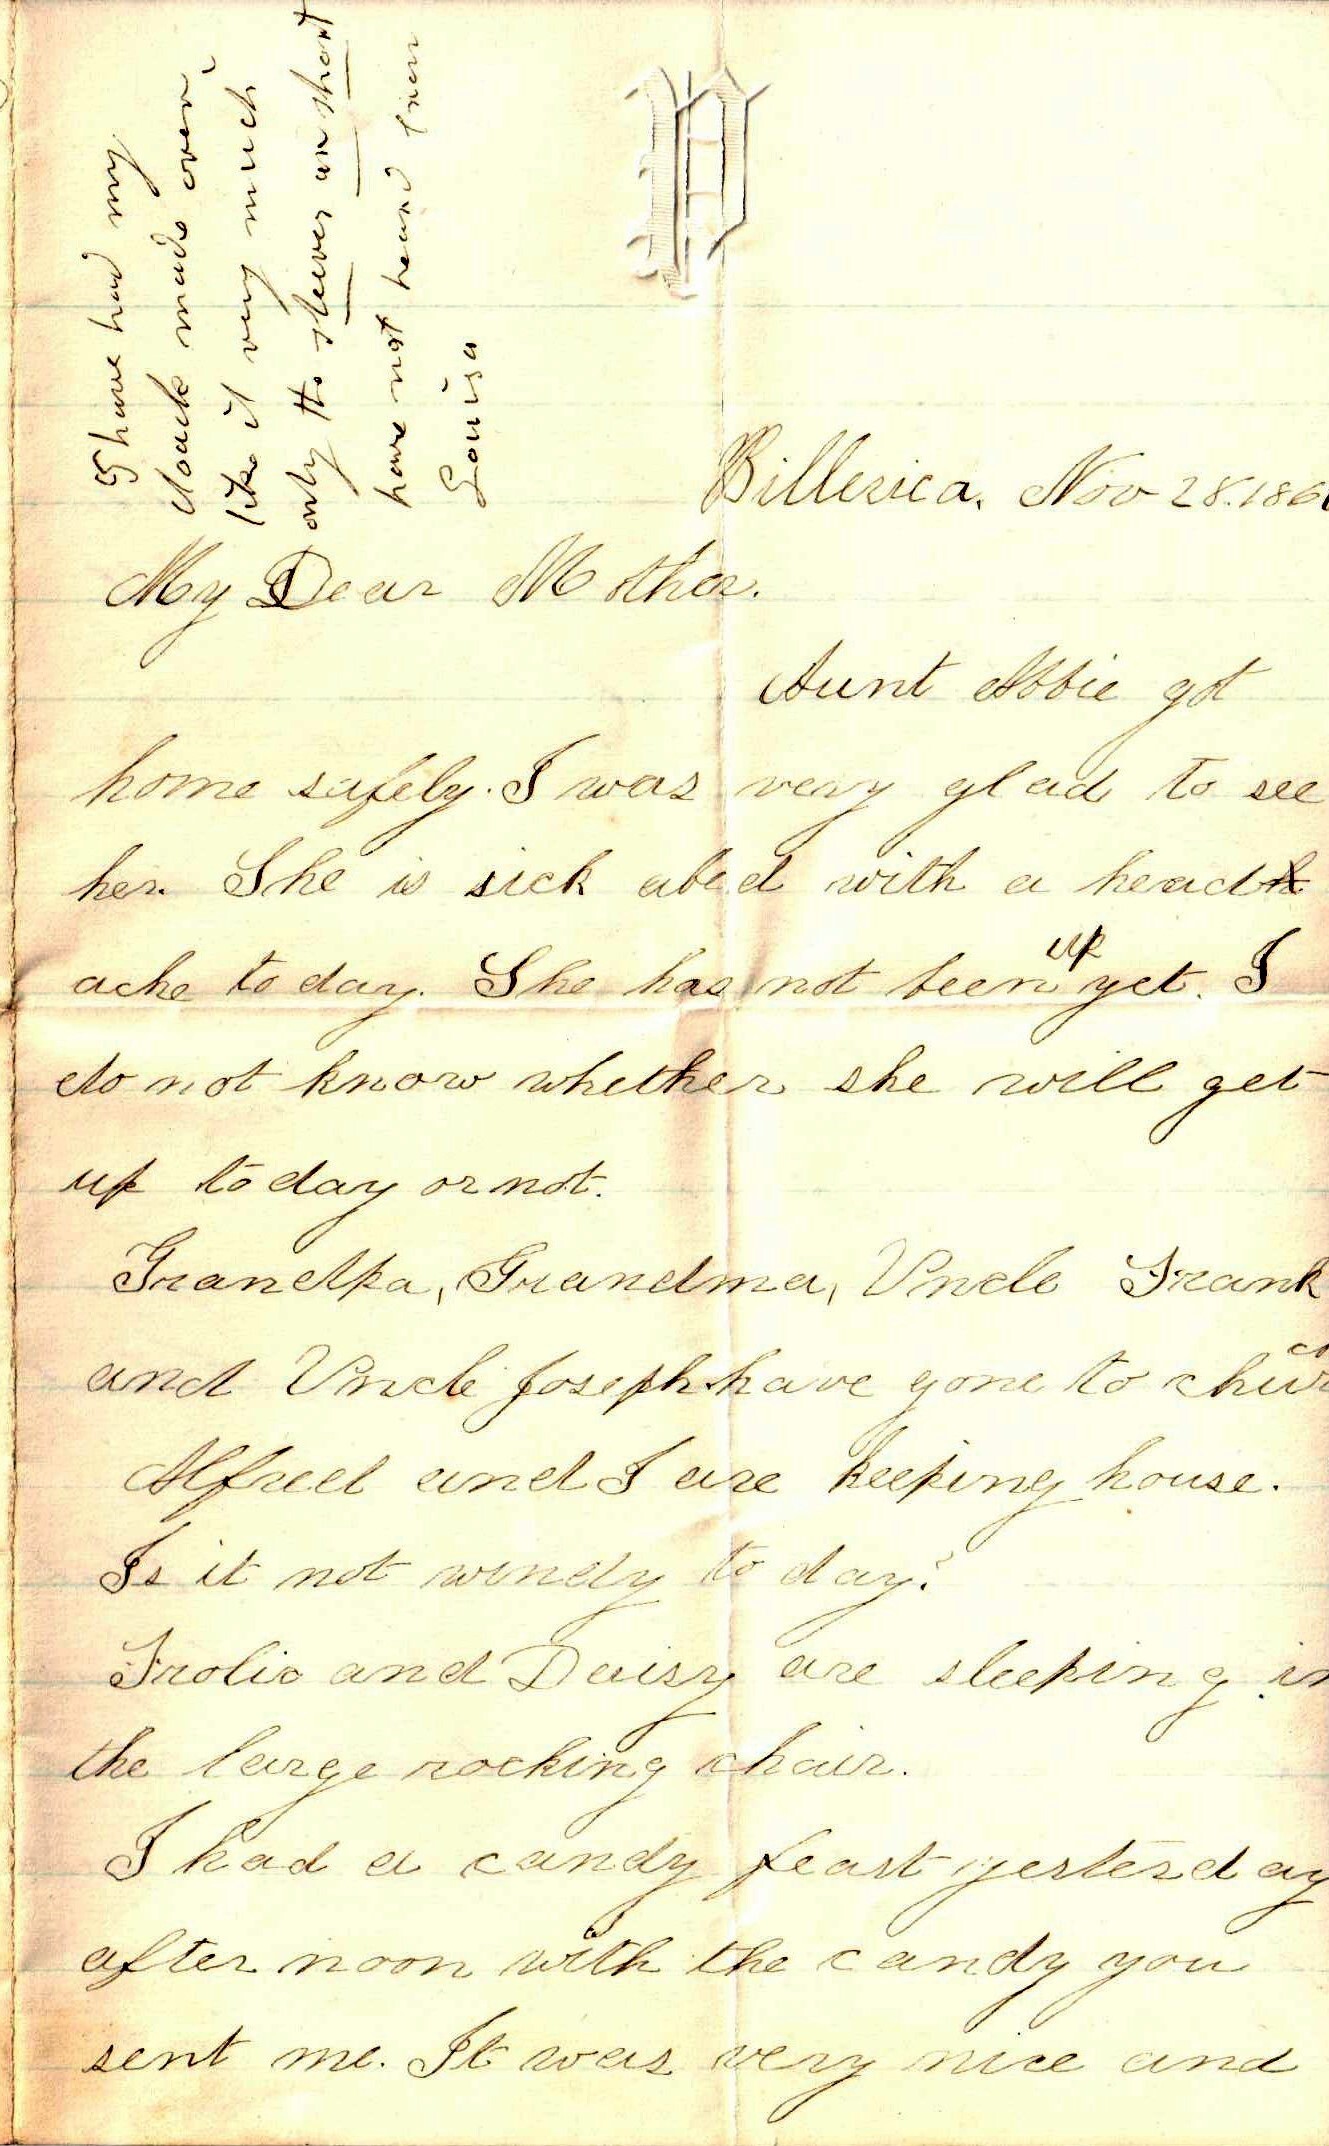 I have had my
cloack made over,
like it very much
only the sleeves are short
have not heard from
Louisa
P
Billerica. Nov 28. 186
My Dear Mother.
Aunt Abbie got
home safely. I was very glad to see
her. She is sick abed with a head
ache to day. She has not been up yet. I
do not know whether she will get
up to day or not.
Grandpa, Grandma, Uncle Frank
and Uncle Joseph have gone to
Alfred and I are keeping house.
Is it not windy to day?
Frolic and Daisy are sleeping in
the large rocking chair.
I had a candy feast yesterday
after noon with the candy you
sent me. It was very nice and